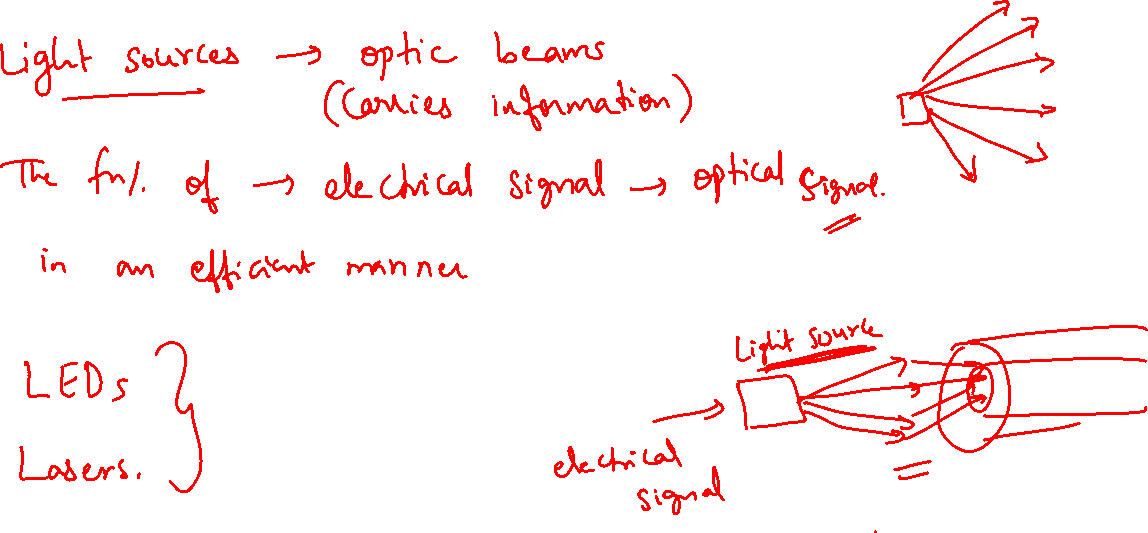 Light sources → optic beams
(Carries information)
The fn/. of → electrical signal → optical signal.
in an efficient manner
LEDs
Lasers.
Light source
electrical
signal